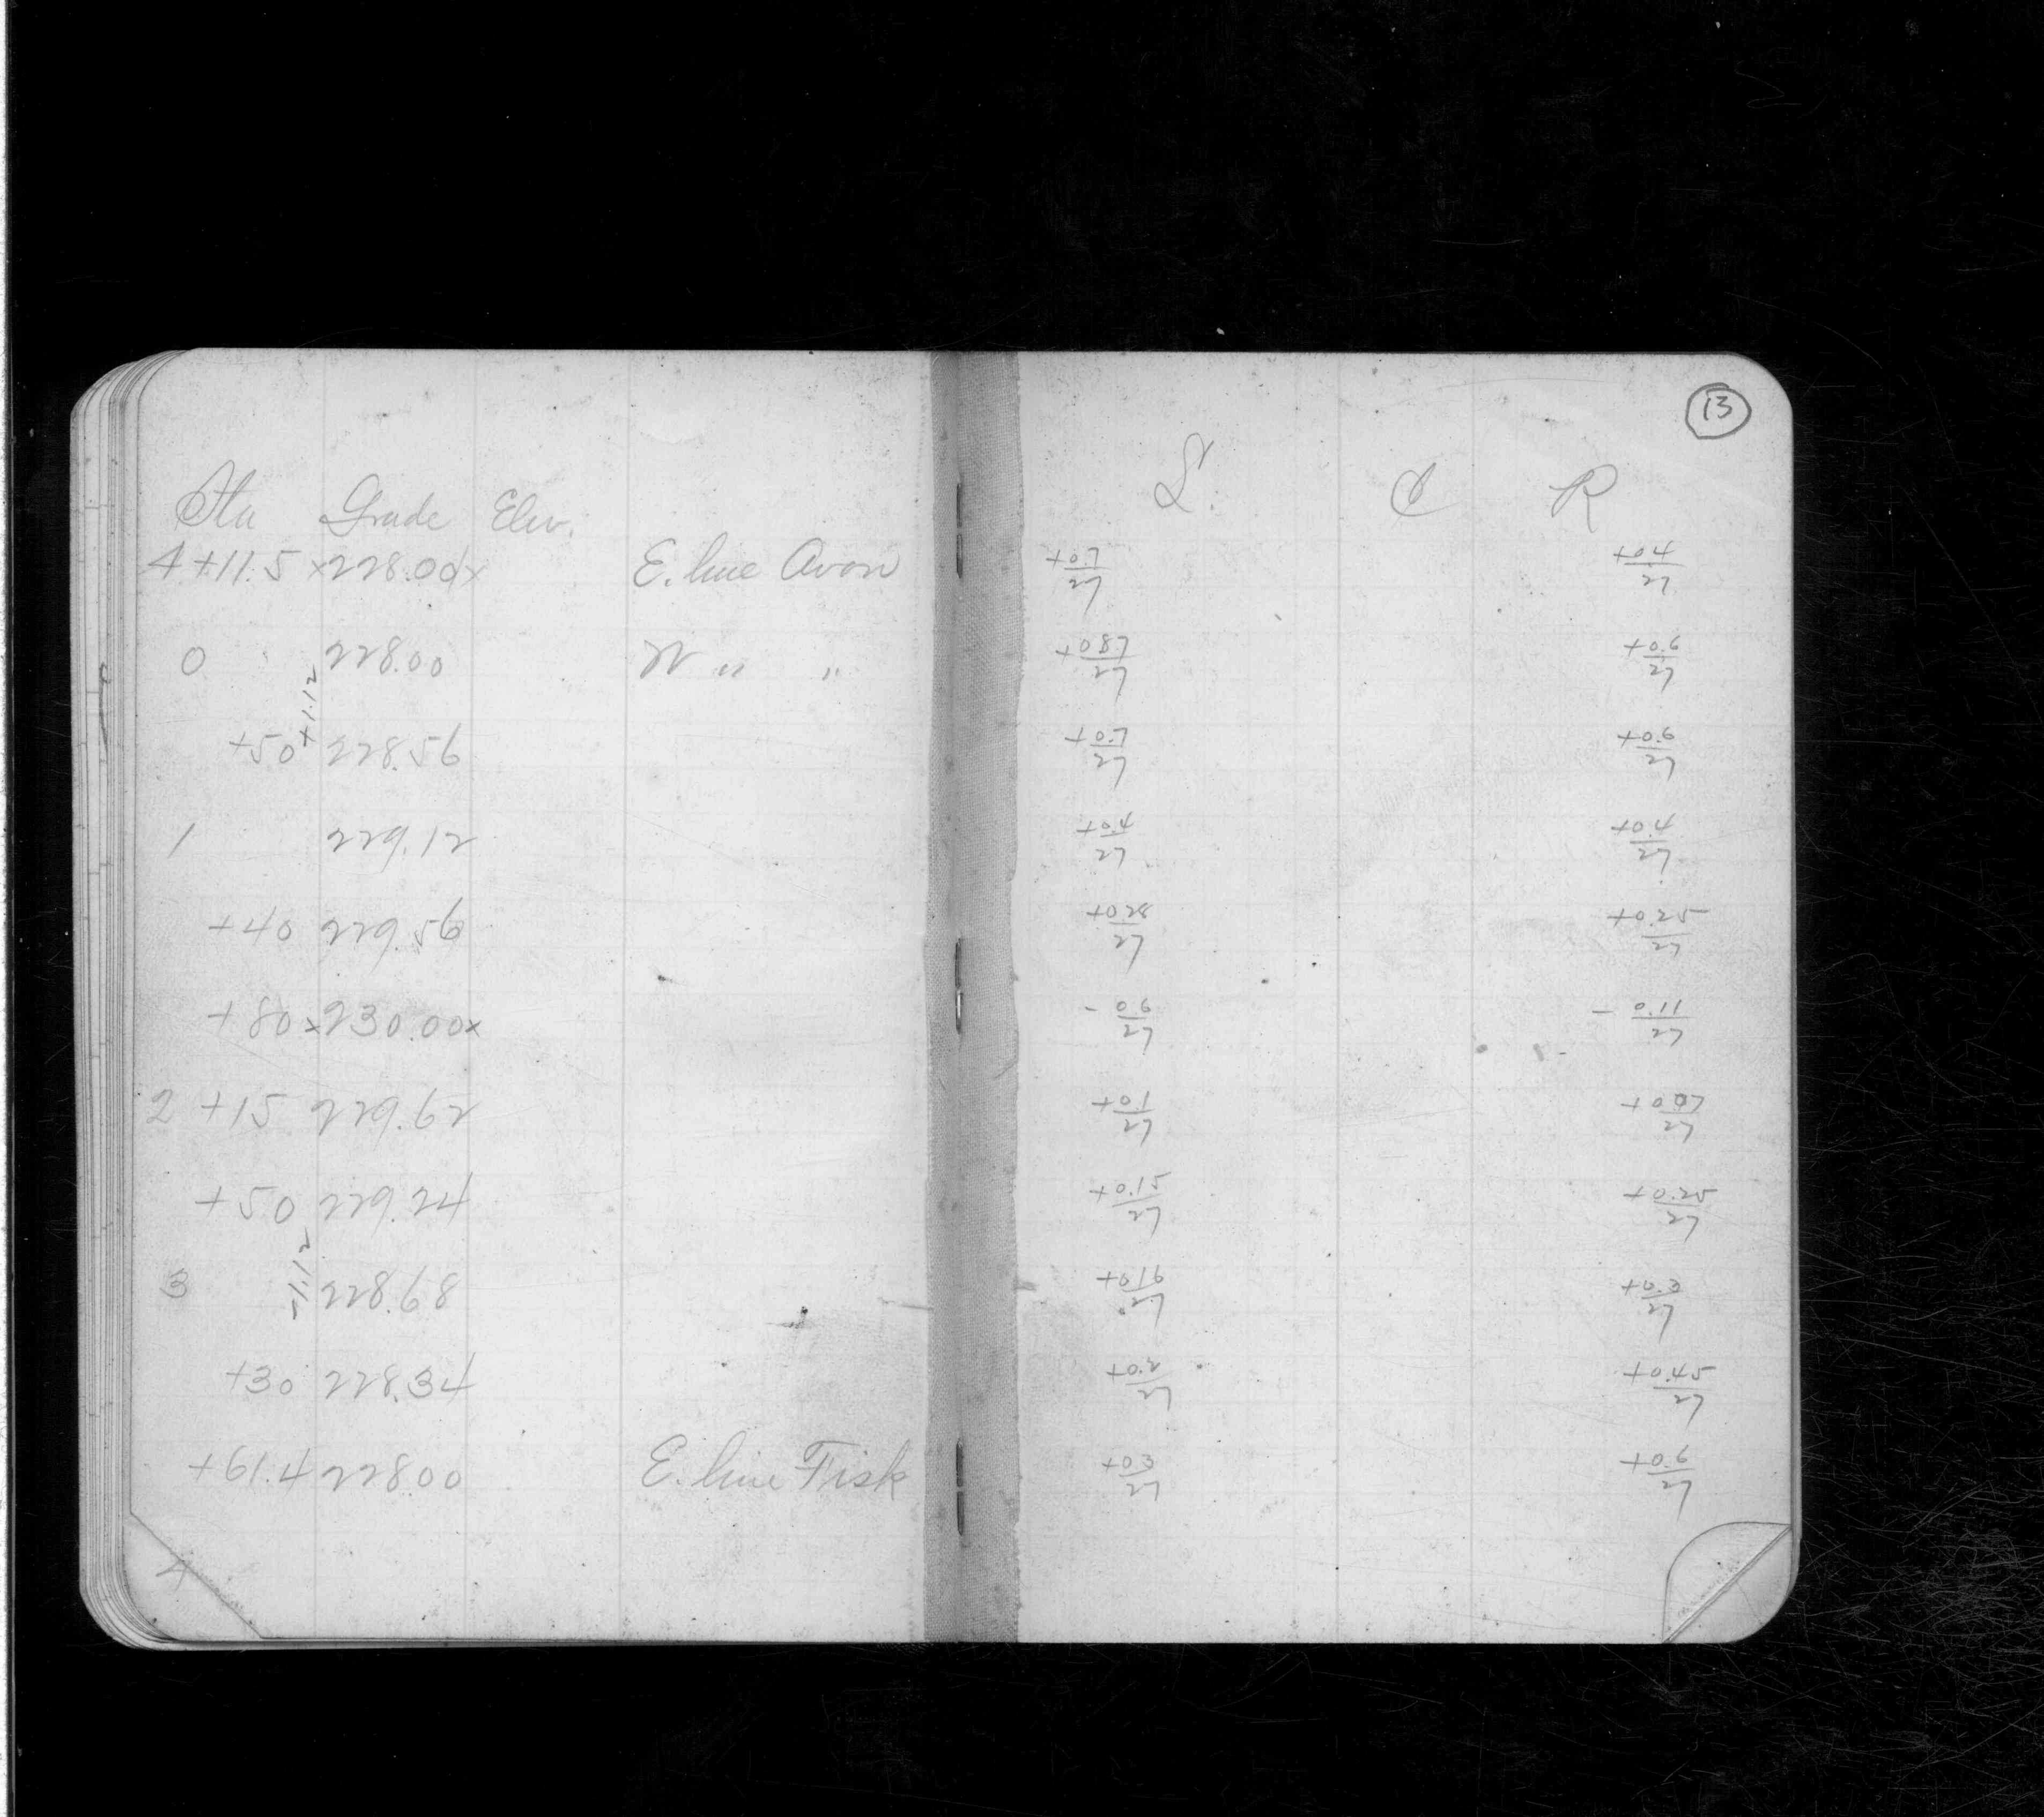 13
Sta Grade Elev. L. ₵ R
4+11.5 x228.00x E. line Avon +0.7/27 +0.4/27
0 228.00 W " " +0.87/27 +0.6/27
+1.12
+50 228.56 +0.7/27 +0.6/27
1 229.12 +0.4/27 +0.4/27
+40 229.56 +0.28/27 +0.25/27
+80 x230.00x - 06/27 - 0.11/27
2 +15 229.62 +0.1/27 +0.07/27
+50 229.24 +0.15/27 +0.25/27
-1.12
3 228.68 +016/27 +0.3/27
+30 228.34 +0.2/27 +0.45/27
+61.4 22800 E. line Fisk +03/27 +0.6/27
4